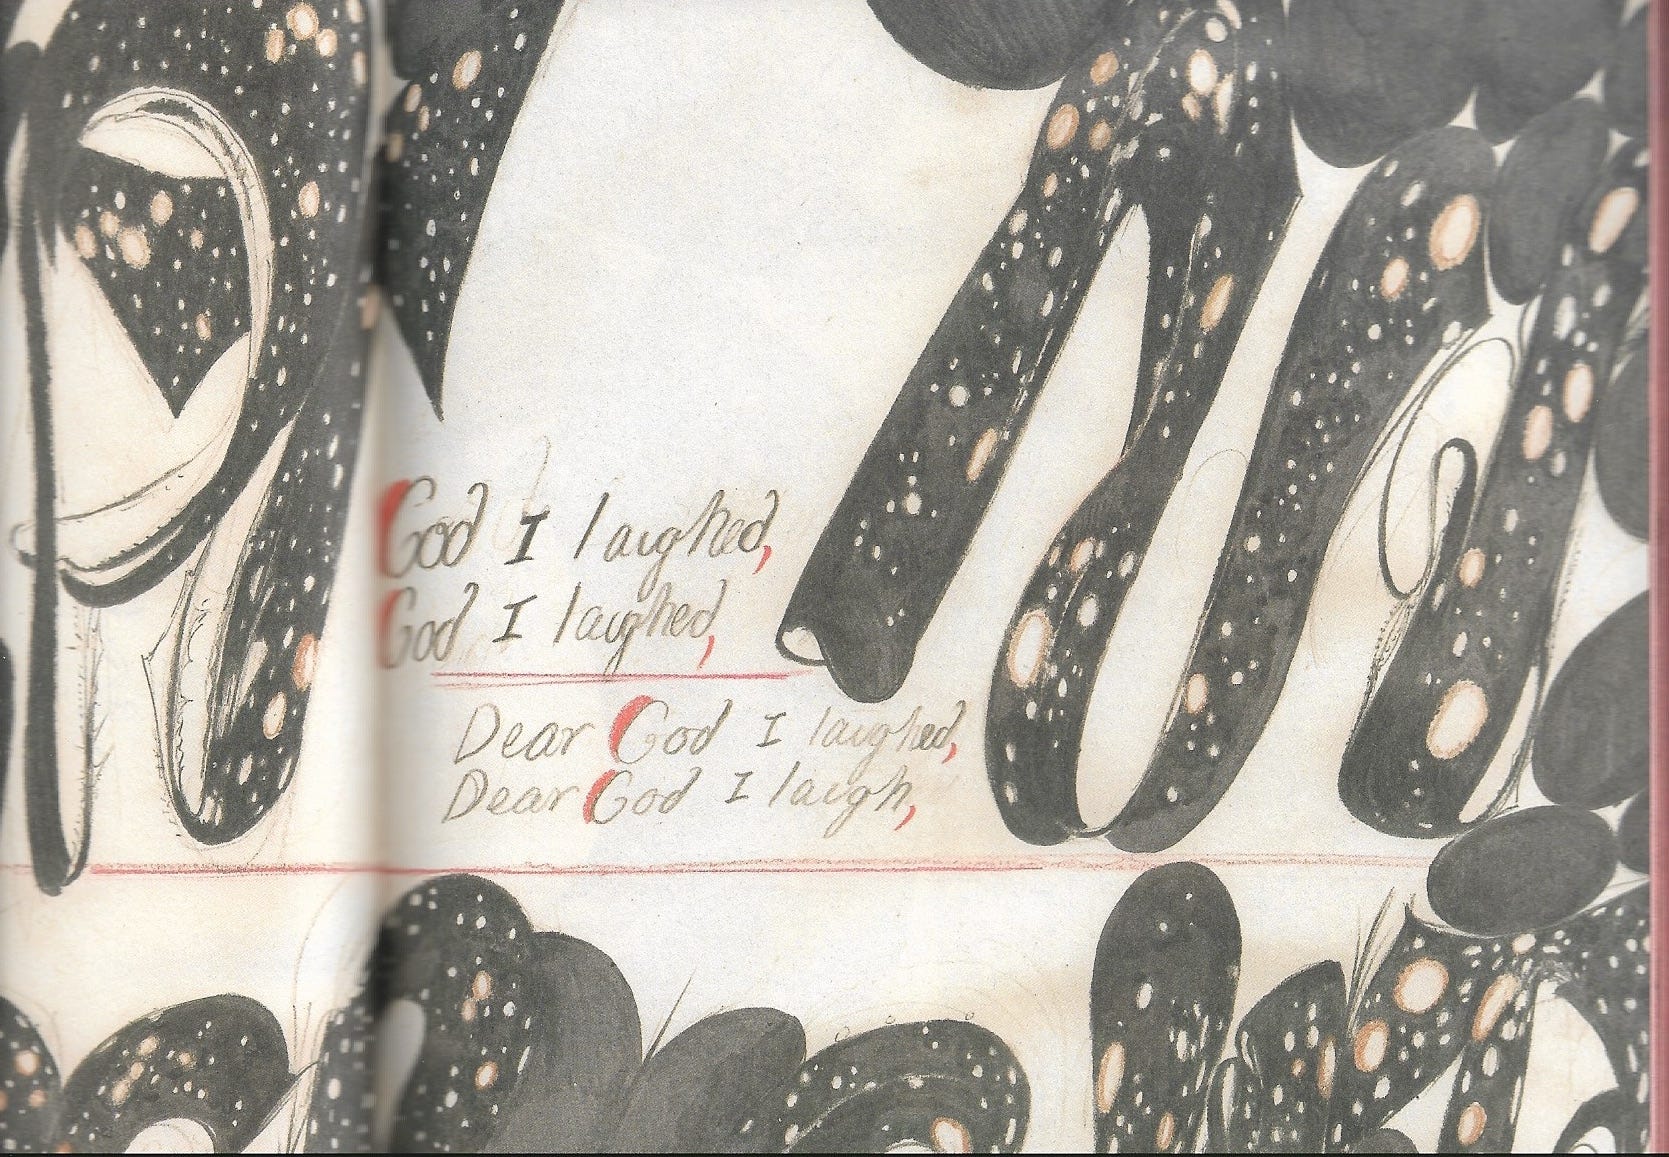 God I laughed,
God I laughed,
Dear God I laughed,
Dear God I laugh,